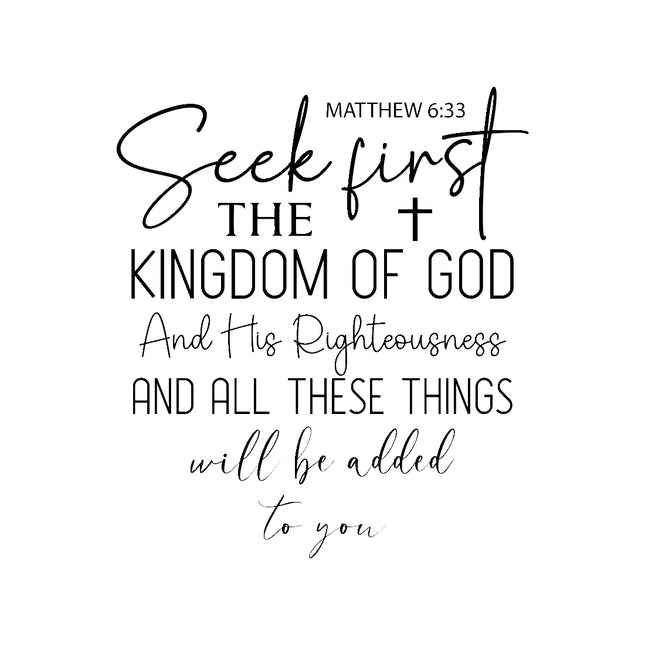 MATTHEW 6:33
Seek first
THE
KINGDOM OF GOD
And His Righteousness
AND ALL THESE THINGS
will be added
to you